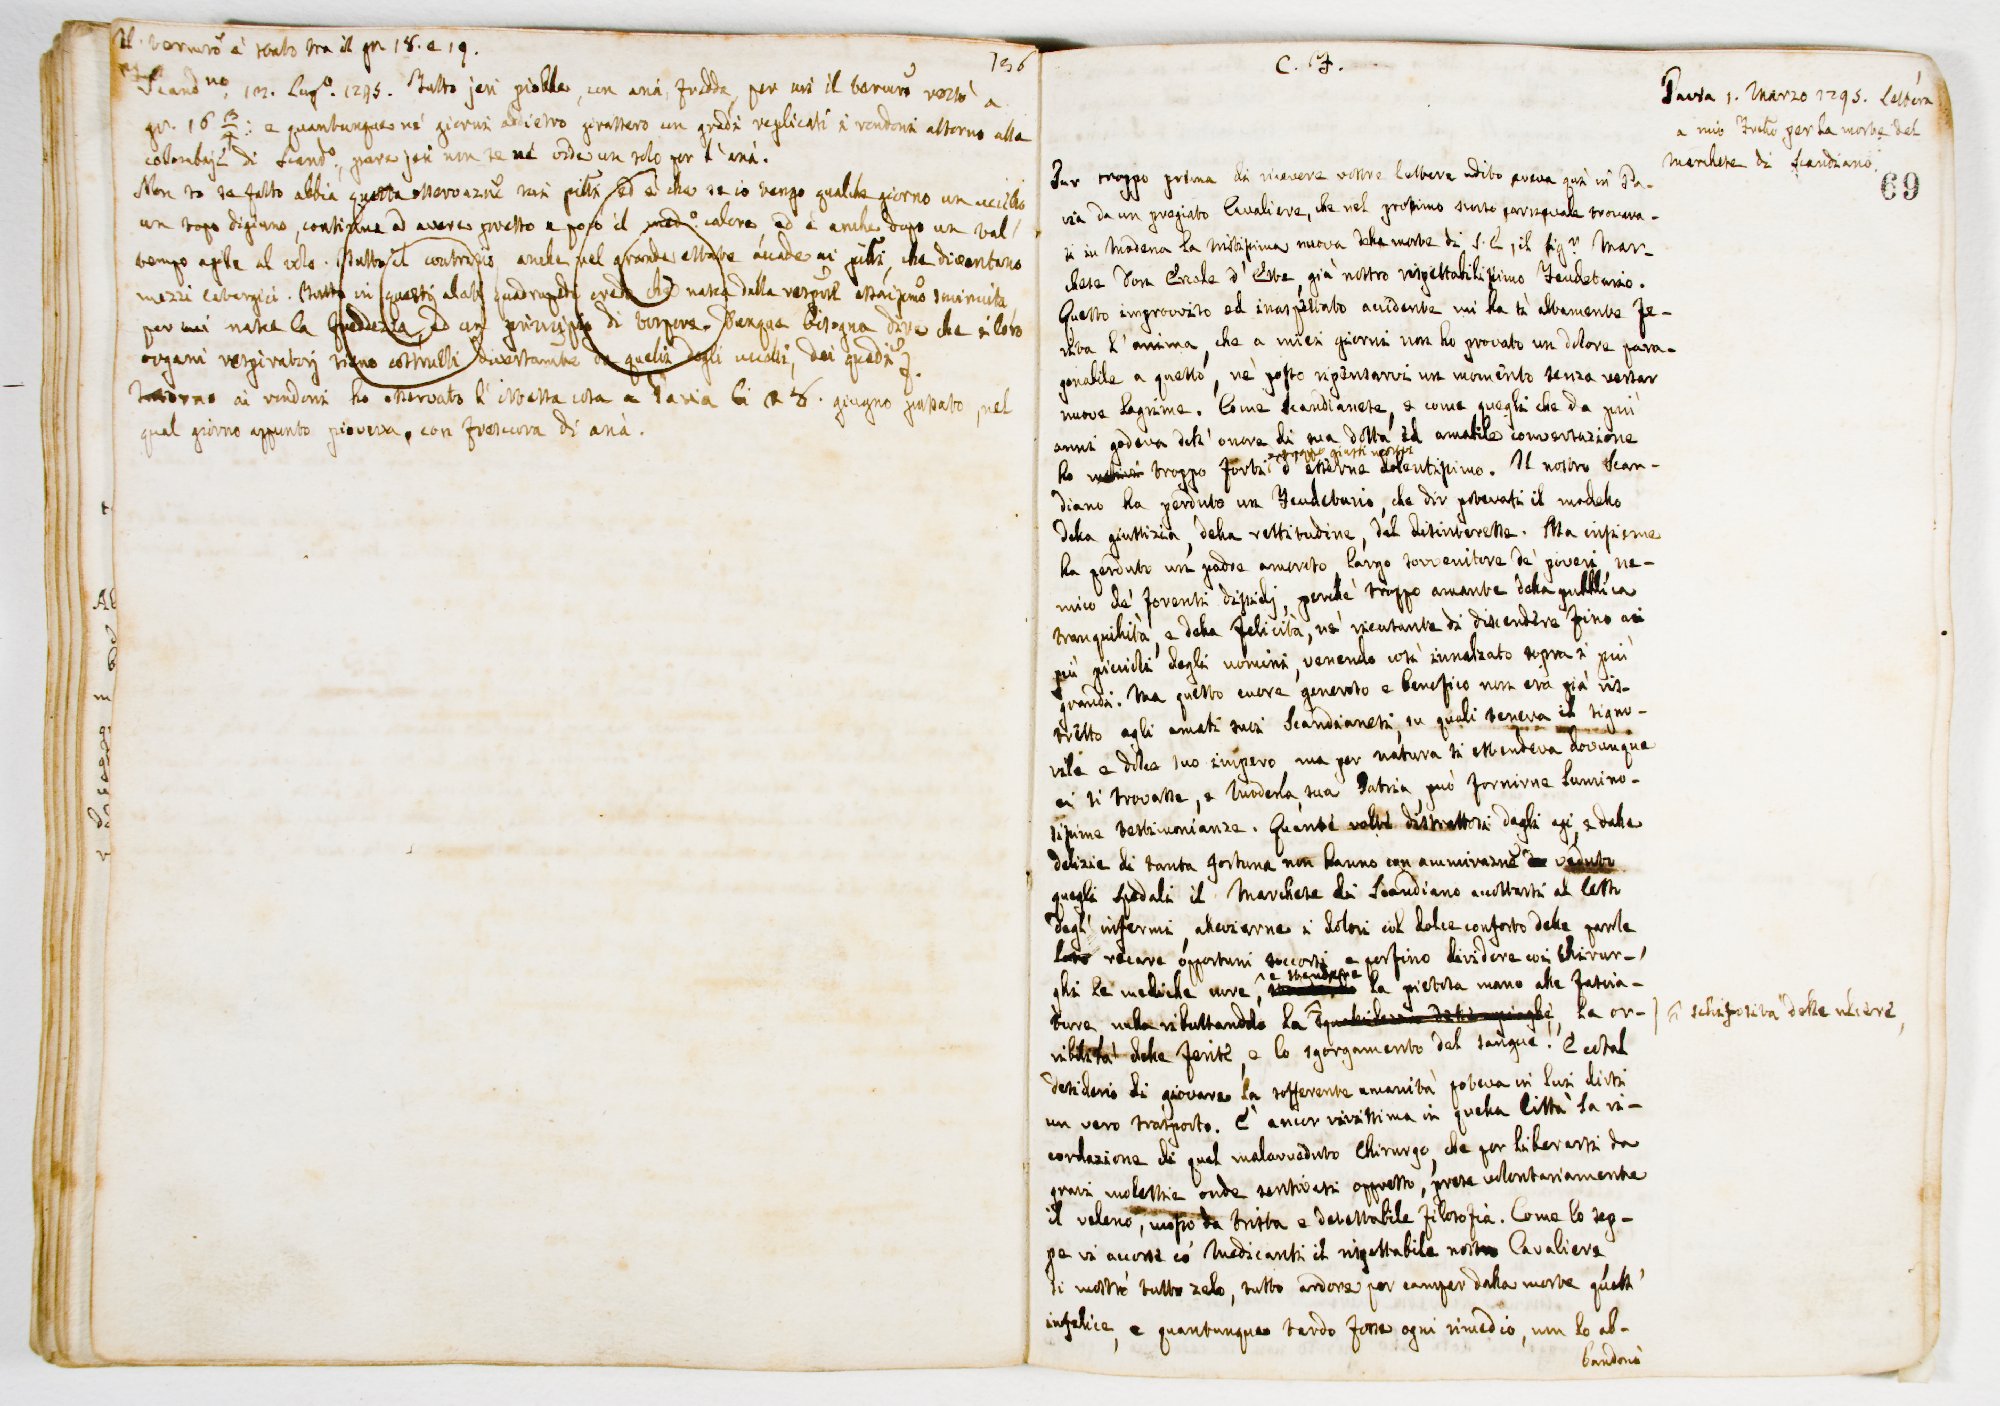 Il termro è stato tra il gr. 18. e 19.
136
Scandno. 12. Lugo. 1795. Tutto jeri piobbe, con aria fredda, per cui il termro restò a
gr. 16 1/2: e quantunque ne' giorni addietro girassero con gradi replicati i rondoni attorno alla
colombaja di Scando, pure jeri non se ne vide un solo per l'aria.
Non so se fatto abbia questa osservazne sui pilli ed è che se io tengo qualche giorno un uccello
un topo digiuno, continua ad avere presto e poco il medo calore, ed è anche dopo un tal
tempo agile al volo. Tutto il contrario anche nel grande estate accade ai pilli, che diventano
mezzi letargici. Tutto in questi alati quadrupedi credo che nasca dalla respirne assaissimo sminuita
per cui nasce la freddezza, ed un principio di torpore. Dunque bisogna dire che i loro
organi respiratorj sieno costrutti diversamte da quelli degli uccelli, dei quadri.
Intorno ai rondoni ho osservato l'istessa cosa a Pavia li 28. giugno passato, nel
qual giorno appunto pioveva, con frescura di aria.
C. F.
Pavia 1. Marzo 1795. Lettera
a mio Frello per la morte del
Marchese di Scandiano.
69
Pur troppo prima di ricevere vostre lettere udito aveva quì in Pa-
via da un pregiato Cavaliere, che nel prossimo scorso carnevale trovava-
si in Modena la tristissima nuova della morte di S. E. il Sigr. Mar-
chese Don Ercole d'Este, già nostro rispettabilissimo Feudetario.
Questo improvviso ed inaspettato accidente mi ha sì altamente fe-
rita l'anima, che a miei giorni non ho provato un dolore para-
gonabile a questo, nè posso ripensarvi un momento senza versar
nuove lagrime. Come Scandianese, e come quegli che da più
anni godeva dell'onore di sua dotta ed amabile conversazione
e troppo giusti motivi
ho troppo forti d'esserne dolentissimo. Il nostro Scan-
diano ha perduto un Feudetario, che dir potevasi il modello
della giustizia, della rettitudine, del disinteresse. Ma insieme
ha perduto un padre amoroso largo sovvenitore de' poveri, ne-
mico de' forensi dissidj, perchè troppo amante della pubblica
tranquillità, e della felicità, nè ricusante di discendere fino ai
più piccioli degli uomini, venendo così innalzato sopra i più
grandi. Ma questo cuore generoso e benefico non era già ris-
tretto agli amati suoi Scandianesi, su quali teneva il signo-
rile e dolce suo impero, ma per natura si estendeva dovunque
ei si trovasse, e Modena, sua Patria, può fornirne lumino-
sissime testimonianze. Quante volte distrattosi dagli agi, e dalle
delizie di tanta fortuna non hanno con ammirazne veduto
quegli Spedali il Marchese di Scandiano accostarsi al letto
degl'infermi, alleviarne i dolori col dolce conforto delle parole
loro recare opportuni soccorsi, e perfino dividere coi Chirur-
e stendere
ghi le mediche cure, la pietosa mano alle fascia-
ture nulla ributtandolo la squallidezza delle piaghe, la or-
la schifosità delle ulcere,
ribilità delle ferite, e lo sgorgamento del sangue! E cotal
desiderio di giovare la sofferente umanità poteva in lui dirsi
un vero trasporto. È ancor vivissima in quella Città la ri-
cordazione di quel malavveduto Chirurgo, che per liberarsi da
gravi molestie onde sentivasi oppresso, prese volontariamente
il veleno, mosso da trista e detestabile filosofia. Come lo sep-
pe vi accorse co' Medicanti il rispettabile nostro Cavaliere
si mostrò tutto zelo, tutto ardore per campar dalla morte quell'
infelice, e quantunque tardo fosse ogni rimedio, non lo ab-
bandonò